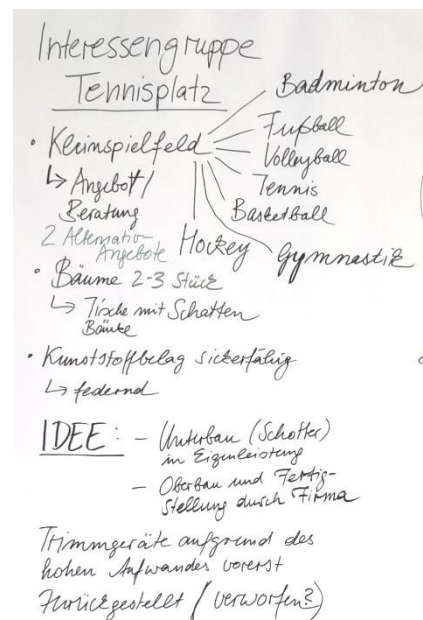 Interessengruppe
Tennisplatz
Badminton
• Kleinspielfeld
Fußball
Volleyball
Tennis
Basketball
Hockey
Gymnastik
↳ Angebot/
Beratung
2 Alternativ-
Angebote
• Bäume 2-3 Stück
↳ Tische mit Schatten
Bänke
• Kunststoffbelag sickerfähig
↳ federnd
IDEE: – Unterbau (Schotter)
in Eigenleistung
– Oberbau und Fertig-
stellung durch Firma
Trimmgeräte aufgrund des
hohen Aufwandes vorerst
zurückgestellt (verworfen?)